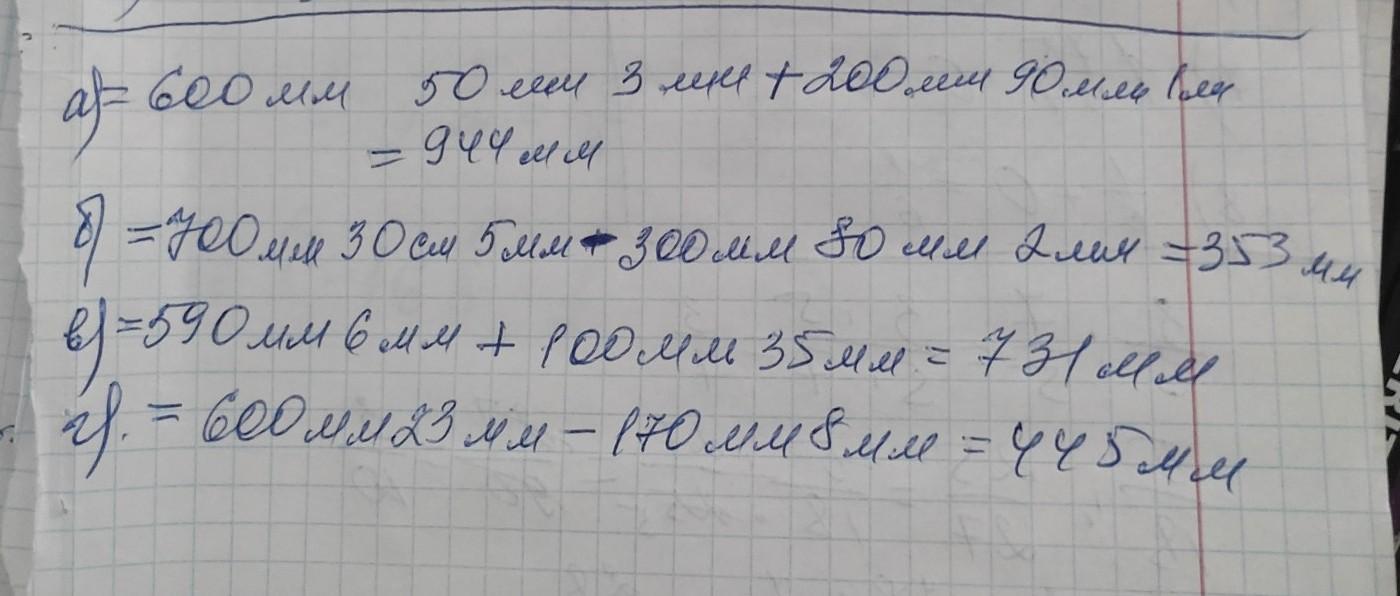 а) = 600 мм 50 мм 3 мм + 200 мм 90 мм 1 мм
= 944 мм
б) = 700 мм 30 см 5 мм - 300 мм 80 мм 2 мм = 353 мм
в) = 590 мм 6 мм + 100 мм 35 мм = 731 мм
г). = 600 мм 23 мм - 170 мм 8 мм = 445 мм